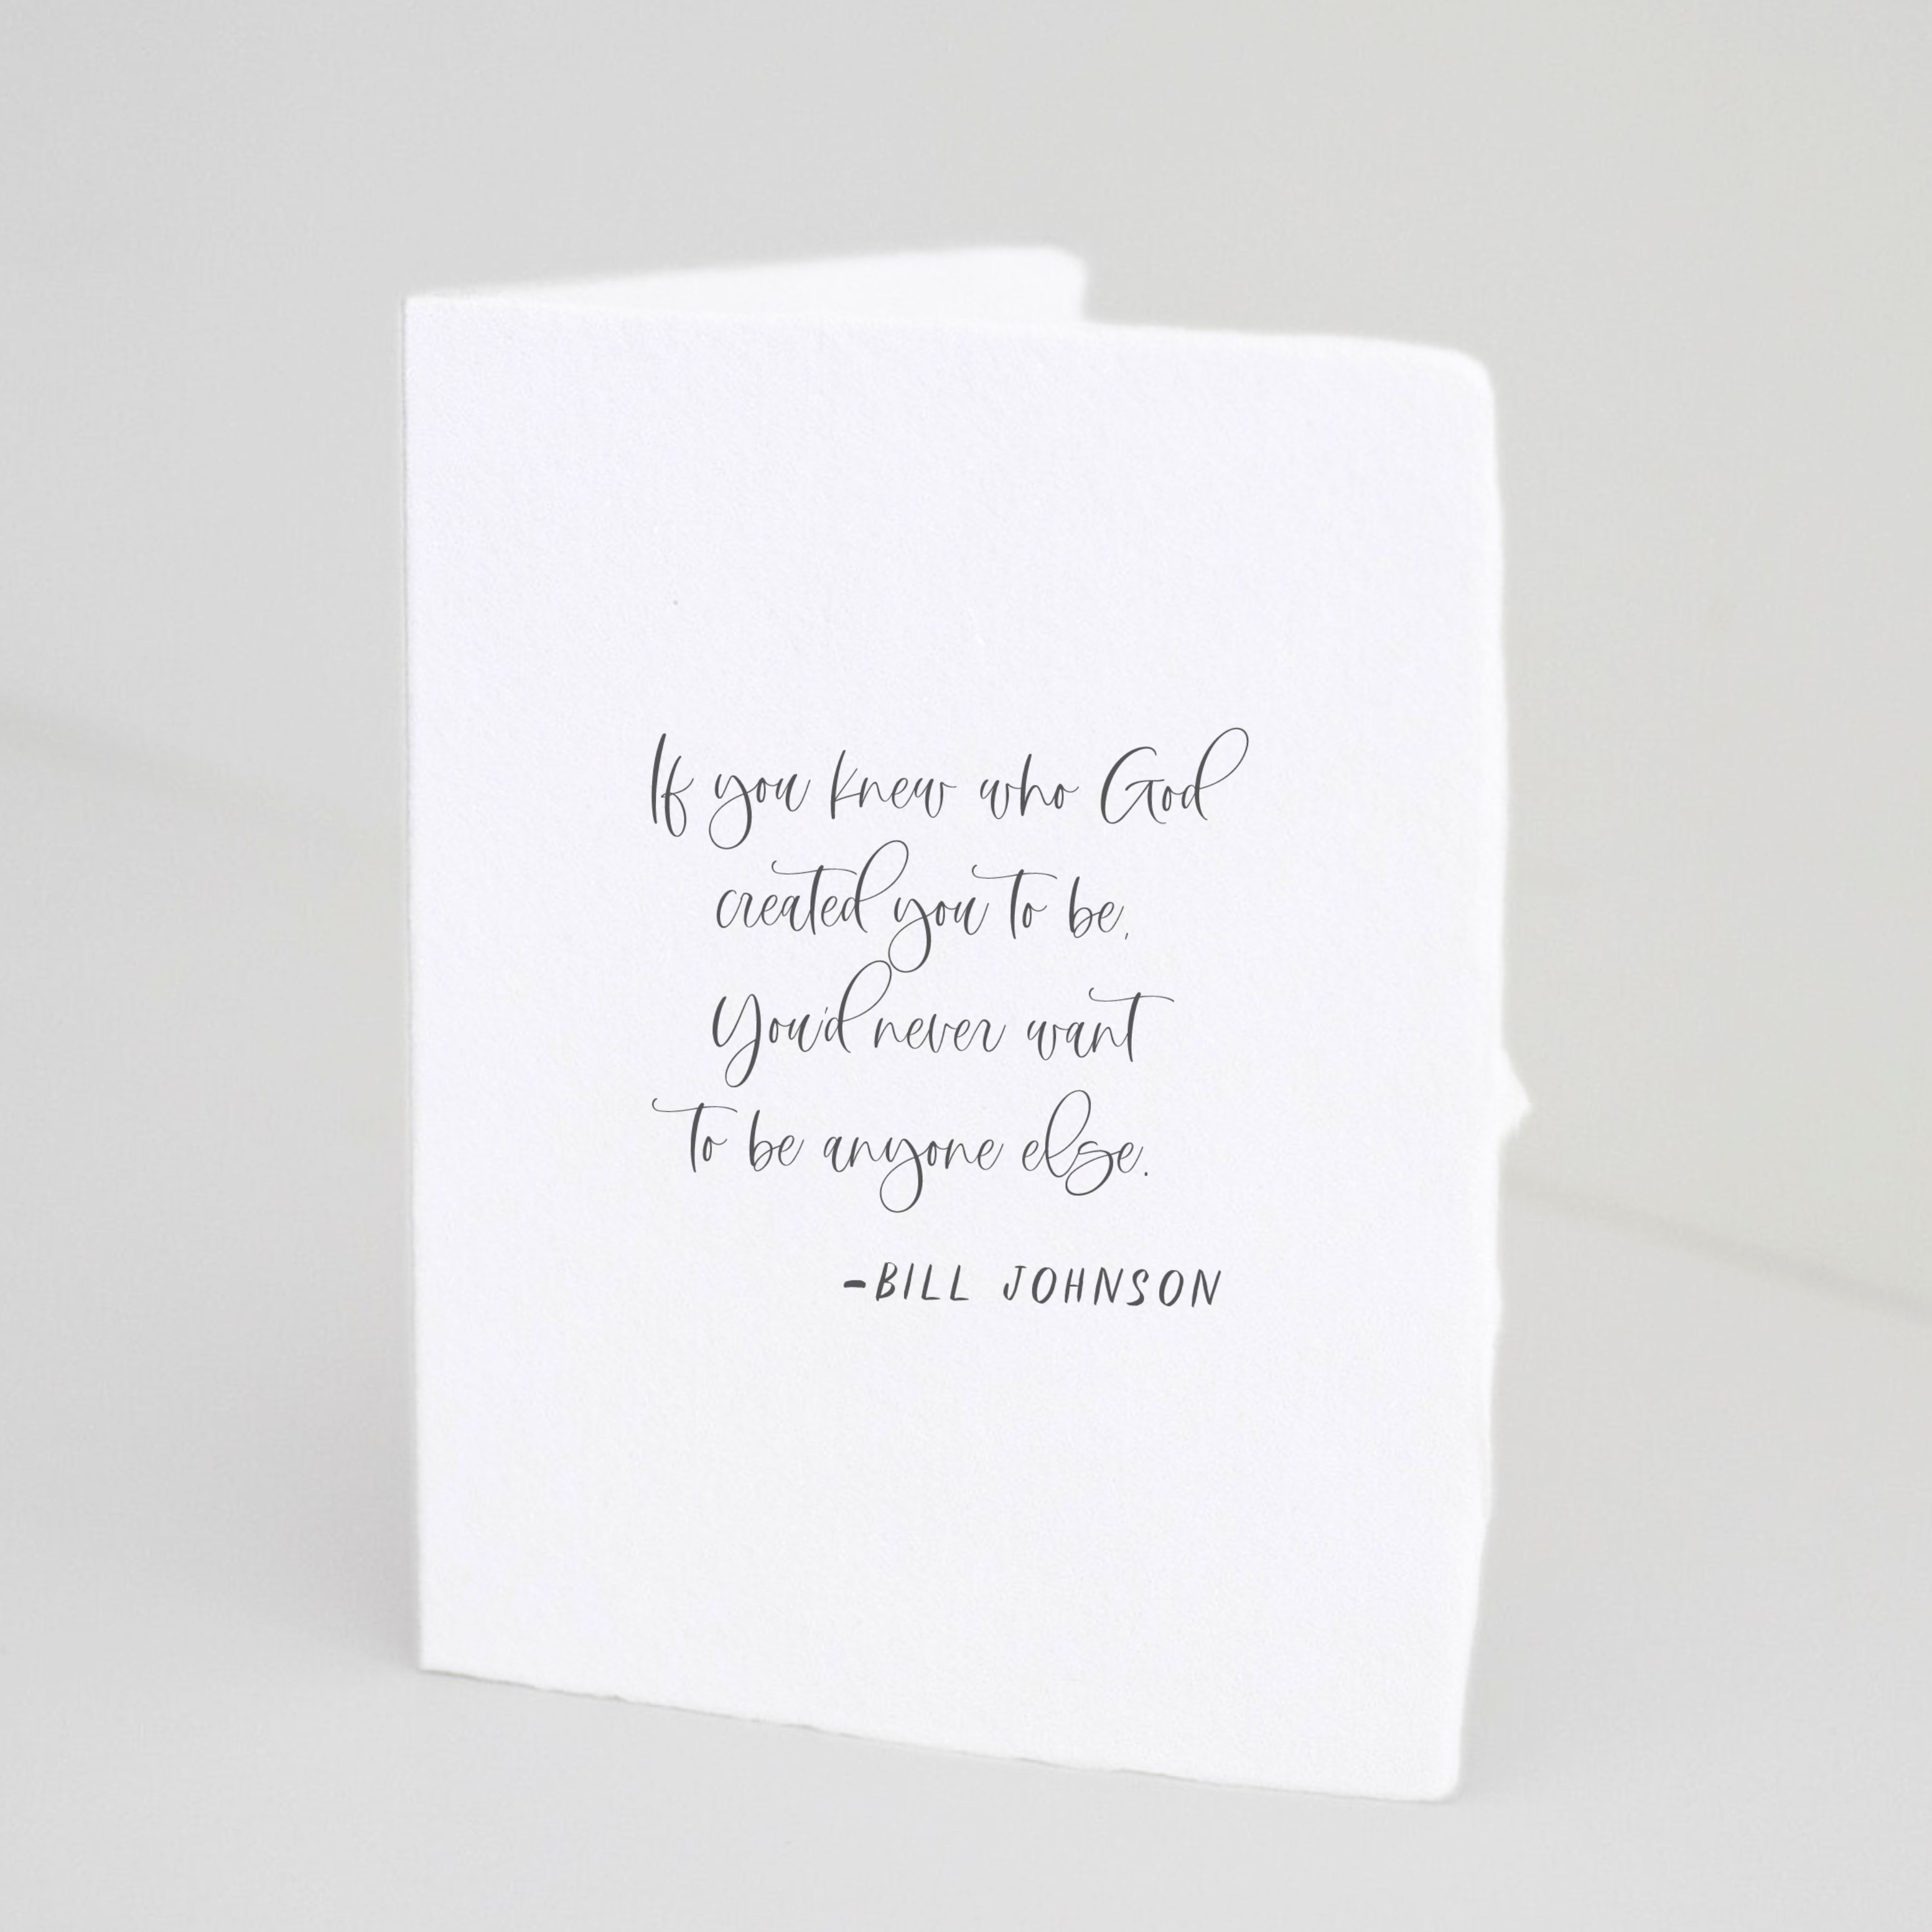 If you knew who God
created you to be,
You'd never want
to be anyone else.
-BILL JOHNSON